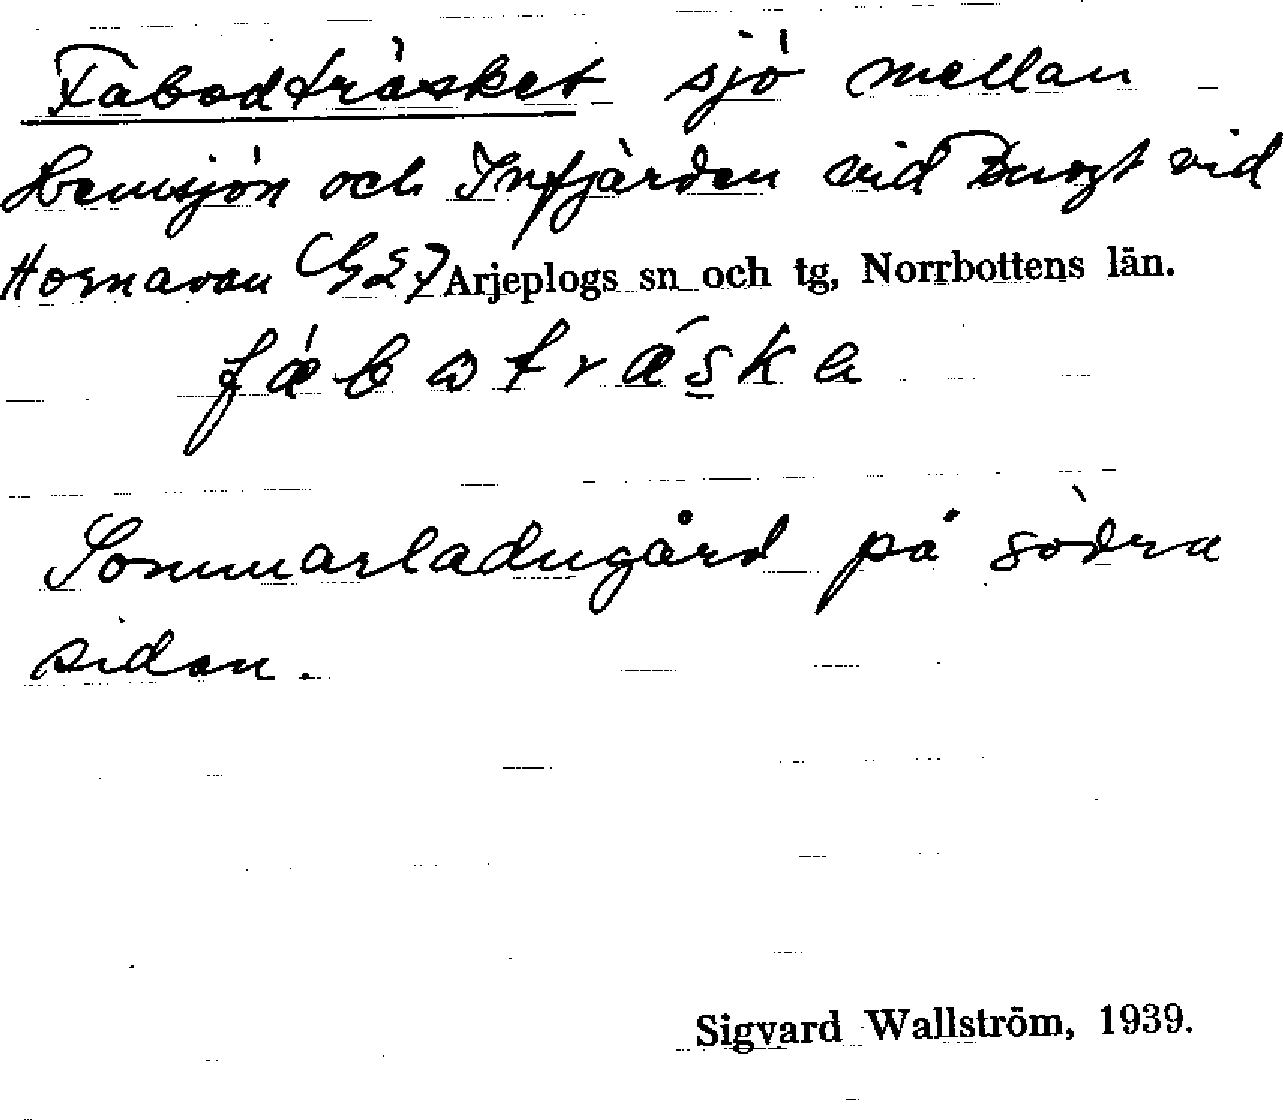 Fäbodträsket sjö mellan
Hemsjön och Infjärden vid vid
Hornavan G27 Arjeplogs sn och tg, Norrbottens län.
fǽbotrǽska
Sommarladugård på södra
sidan.
Sigvard Wallström, 1939.